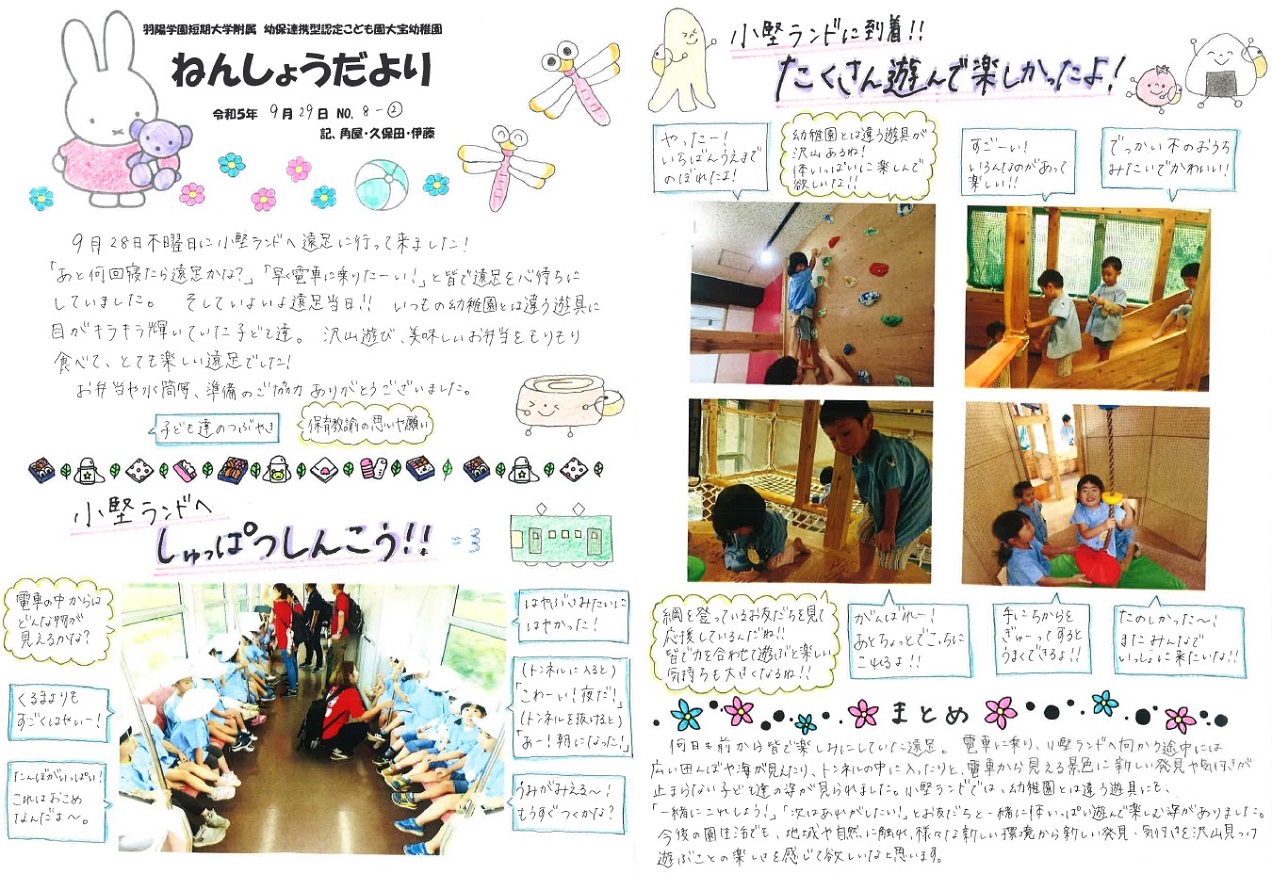 羽陽学園短期大学附属 幼保連携型認定こども園大宝幼稚園
ねんしょうだより
令和5年 9月29日 NO. 8-②
記、角屋・久保田・伊藤
9月28日木曜日に小堅ランドへ遠足に行って来ました!
「あと何回寝たら遠足かな?」「早く電車に乗りたーい!」と皆で遠足を心待ちに
していました。 そしていよいよ遠足当日!! いつもの幼稚園とは違う遊具に
目がキラキラ輝いていた子ども達。 沢山遊び、美味しいお弁当をもりもり
食べて、とても楽しい遠足でした!
お弁当や水筒等、準備のご協力ありがとうございました。
子ども達のつぶやき
保育教諭の思いや願い
小堅ランドへ
しゅっぱつしんこう!!
電車の中からは
どんな物が
見えるかな?
くるまよりも
すごくはやいー!
たんぼがいっぱい!
これはおこめ
なんだよ〜。
はやぶさみたいに
はやかった!
(トンネルに入ると)
「こわーい!夜だ!」
(トンネルを抜けると)
「あー!朝になった!」
うみがみえる〜!
もうすぐつくかな?
小堅ランドに到着!!
たくさん遊んで楽しかったよ!
やったー!
いちばんうえまで
のぼれたよ!
幼稚園とは違う遊具が
沢山あるね!
体いっぱいに楽しんで
欲しいな!!
すごーい!
いろんなのがあって
楽しい!!
でっかい木のおうち
みたいでかわいい!
綱を登っているお友だちを見て
応援しているんだね!!
皆で力を合わせて遊ぶと楽しい
気持ちも大きくなるね!!
がんばれー!
あとちょっとでこっちに
これるよ!!
手にちからを
ぎゅーってすると
うまくできるよ!!
たのしかった〜!
またみんなで
いっしょに来たいな!!
まとめ
何日も前から皆で楽しみにしていた遠足。 電車に乗り、小堅ランドへ向かう途中には
広い田んぼや海が見えたり、トンネルの中に入ったりと、電車から見える景色に新しい発見や気付きが
止まらない子ども達の姿が見られました。小堅ランドでは、幼稚園とは違う遊具にも、
「一緒にこれしよう!」「次はあれがしたい!」とお友だちと一緒に体いっぱい遊んで楽しむ姿がありました。
今後の園生活でも、地域や自然に触れ、様々な新しい環境から新しい発見・気付きを沢山見つけ
遊ぶことの楽しさを感じて欲しいなと思います。